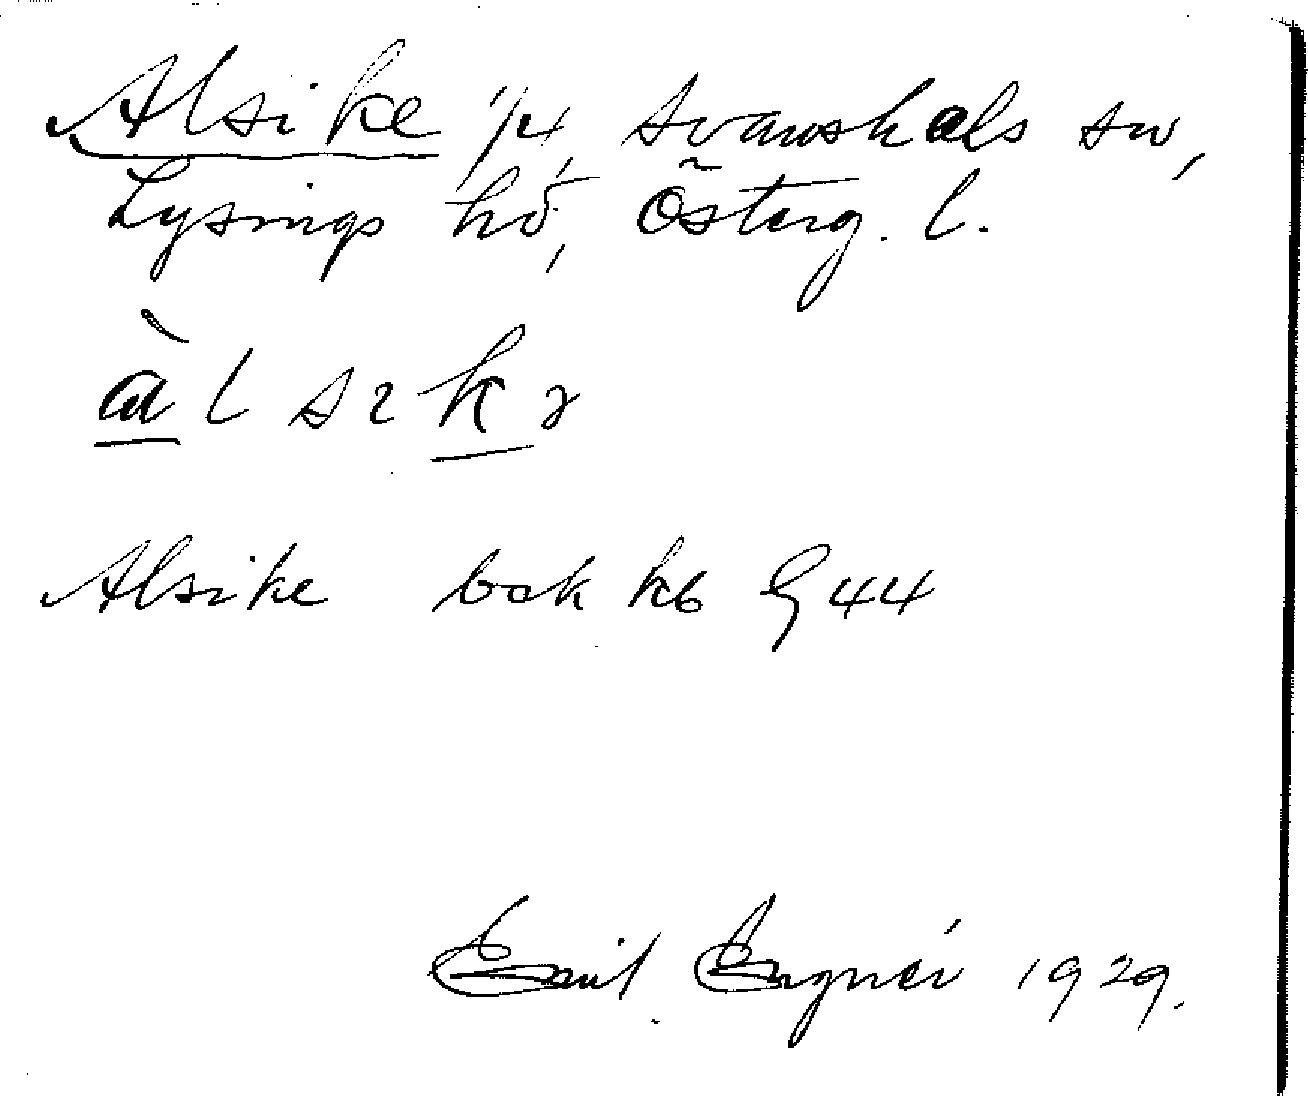 Alsike 1/4, Svanshals sn,
Lysings hd, Österg. l.
àlsıkə
Alsike bok hb § 44
Emil 1929.